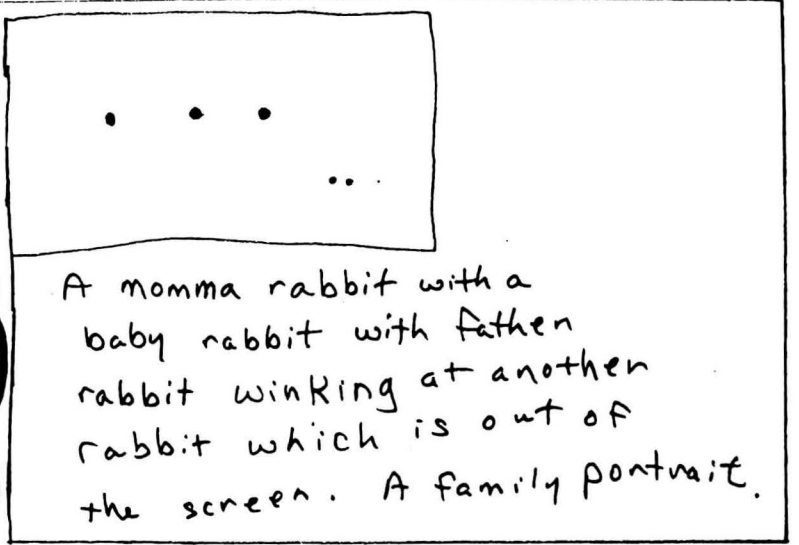 A momma rabbit with a
baby rabbit with father
rabbit winking at another
rabbit which is out of
the screen. A family portrait.